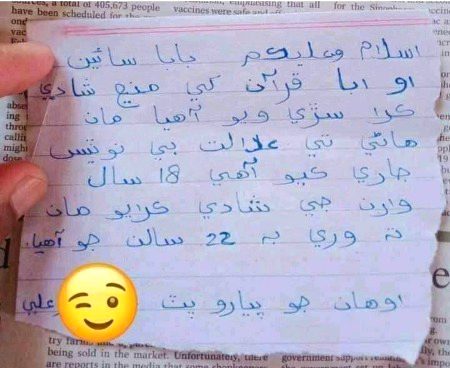 a total of 405,673 people
have been scheduled for the
emphasising that all
vaccines were safe and
for the
اسلام وعليڪم بابا سائين
او ابا قرآن کي مڃ شادي
ڪرا سڙي ويو آهيا مان
هاڻي تي عدالت بي نوٽيس
جاري ڪيو آهي 18 سال
وارن جي شادي ڪرايو مان
ته وري به 22 سالن جو آهيا.
اوهان جو پيارو پٽ علي
being sold in the market. Unfortunately, there
are reports in the media that some
government support